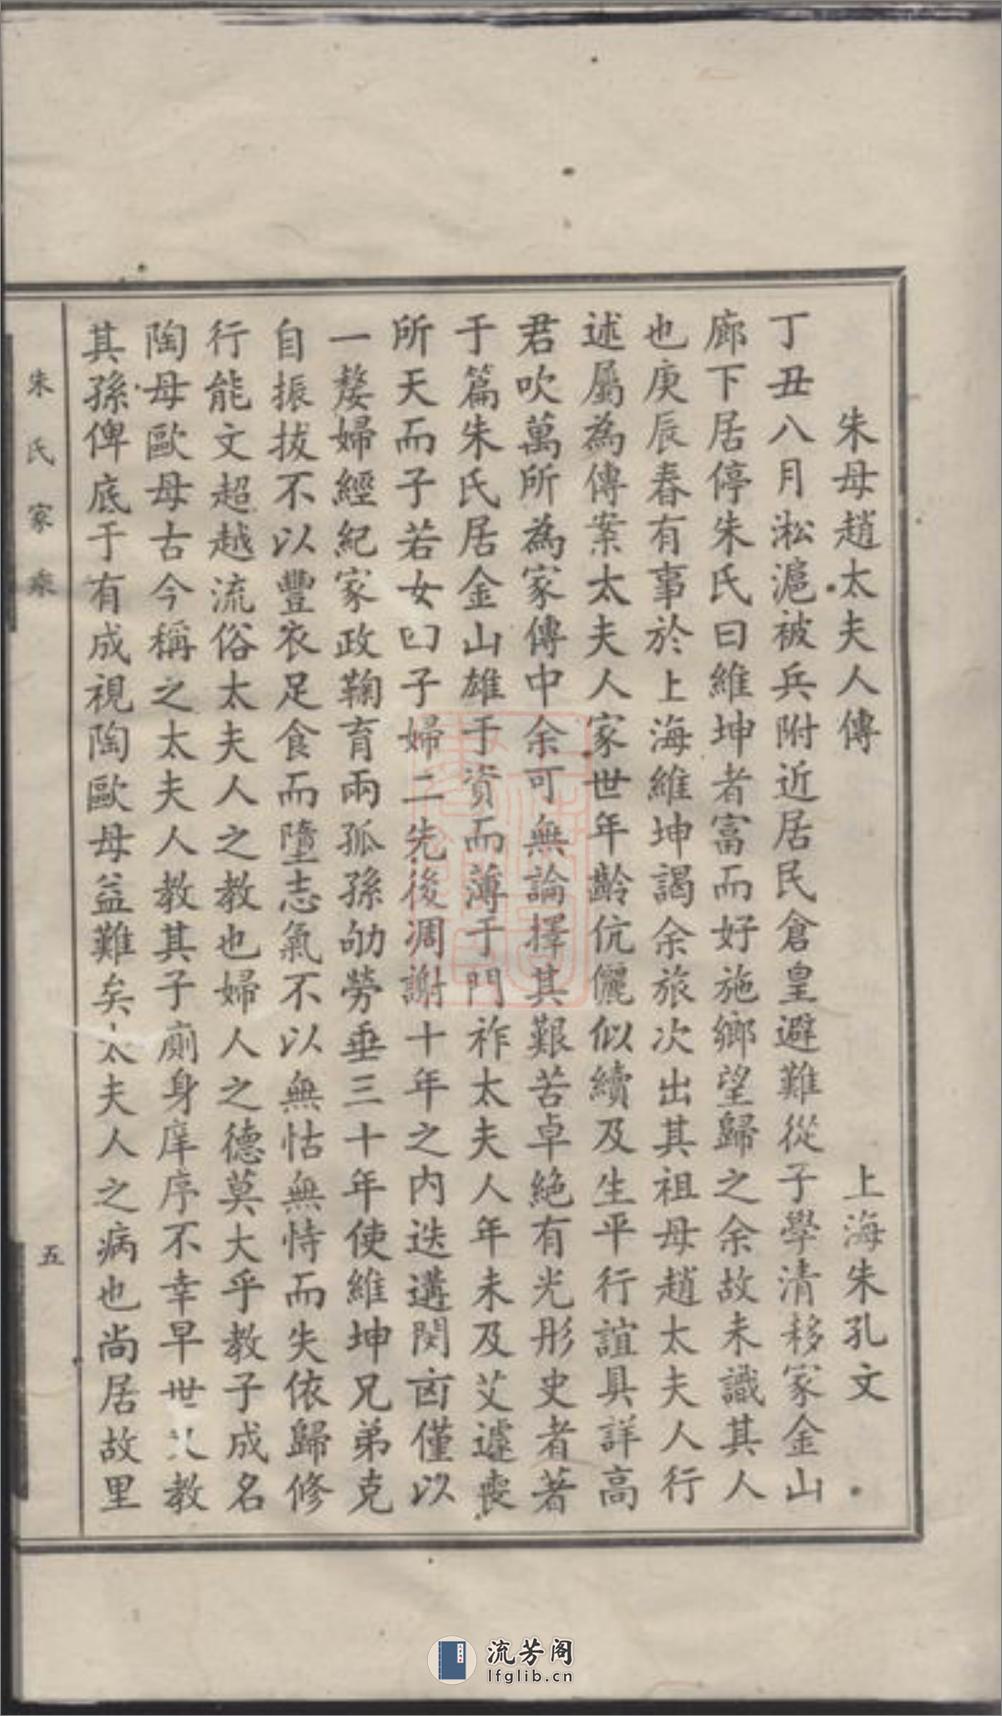 朱母趙太夫人傳　上海朱孔文
丁丑八月淞滬被兵附近居民倉皇避難從子學清移家金山
廊下居停朱氏曰維坤者富而好施鄉望歸之余故未識其人
也庚辰春有事於上海維坤謁余旅次出其祖母趙太夫人行
述屬為傳案太夫人家世年齡伉儷似續及生平行誼具詳高
君吹萬所為家傳中余可無論擇其艱苦卓絕有光彤史者著
于篇朱氏居金山雄于資而薄于門祚太夫人年未及艾遽喪
所天而子若女曰子婦二先後凋謝十年之內迭遘閔凶僅以
一嫠婦經紀家政鞠育兩孤孫劬勞垂三十年使維坤兄弟克
自振拔不以豐衣足食而墮志氣不以無怙無恃而失依歸修
行能文超越流俗太夫人之教也婦人之德莫大乎教子成名
陶母歐母古今稱之太夫人教其子廁身庠序不幸早世又教
其孫俾底于有成視陶歐母益難矣太夫人之病也尚居故里
朱氏家乘
五
流芳阁
lfglib.cn